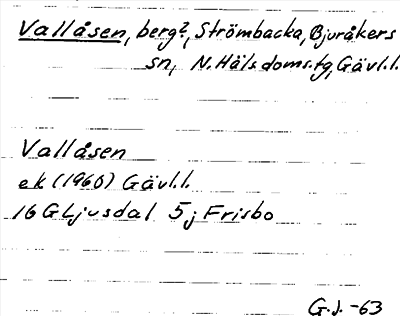 Vallåsen, berg?, Strömbacka, Bjuråkers
sn, N. Häls. doms. fg, Gävl. l.
Vallåsen
ek (1960) Gävl. l.
16 G Ljusdal 5 j Frisbo
G. J. -63